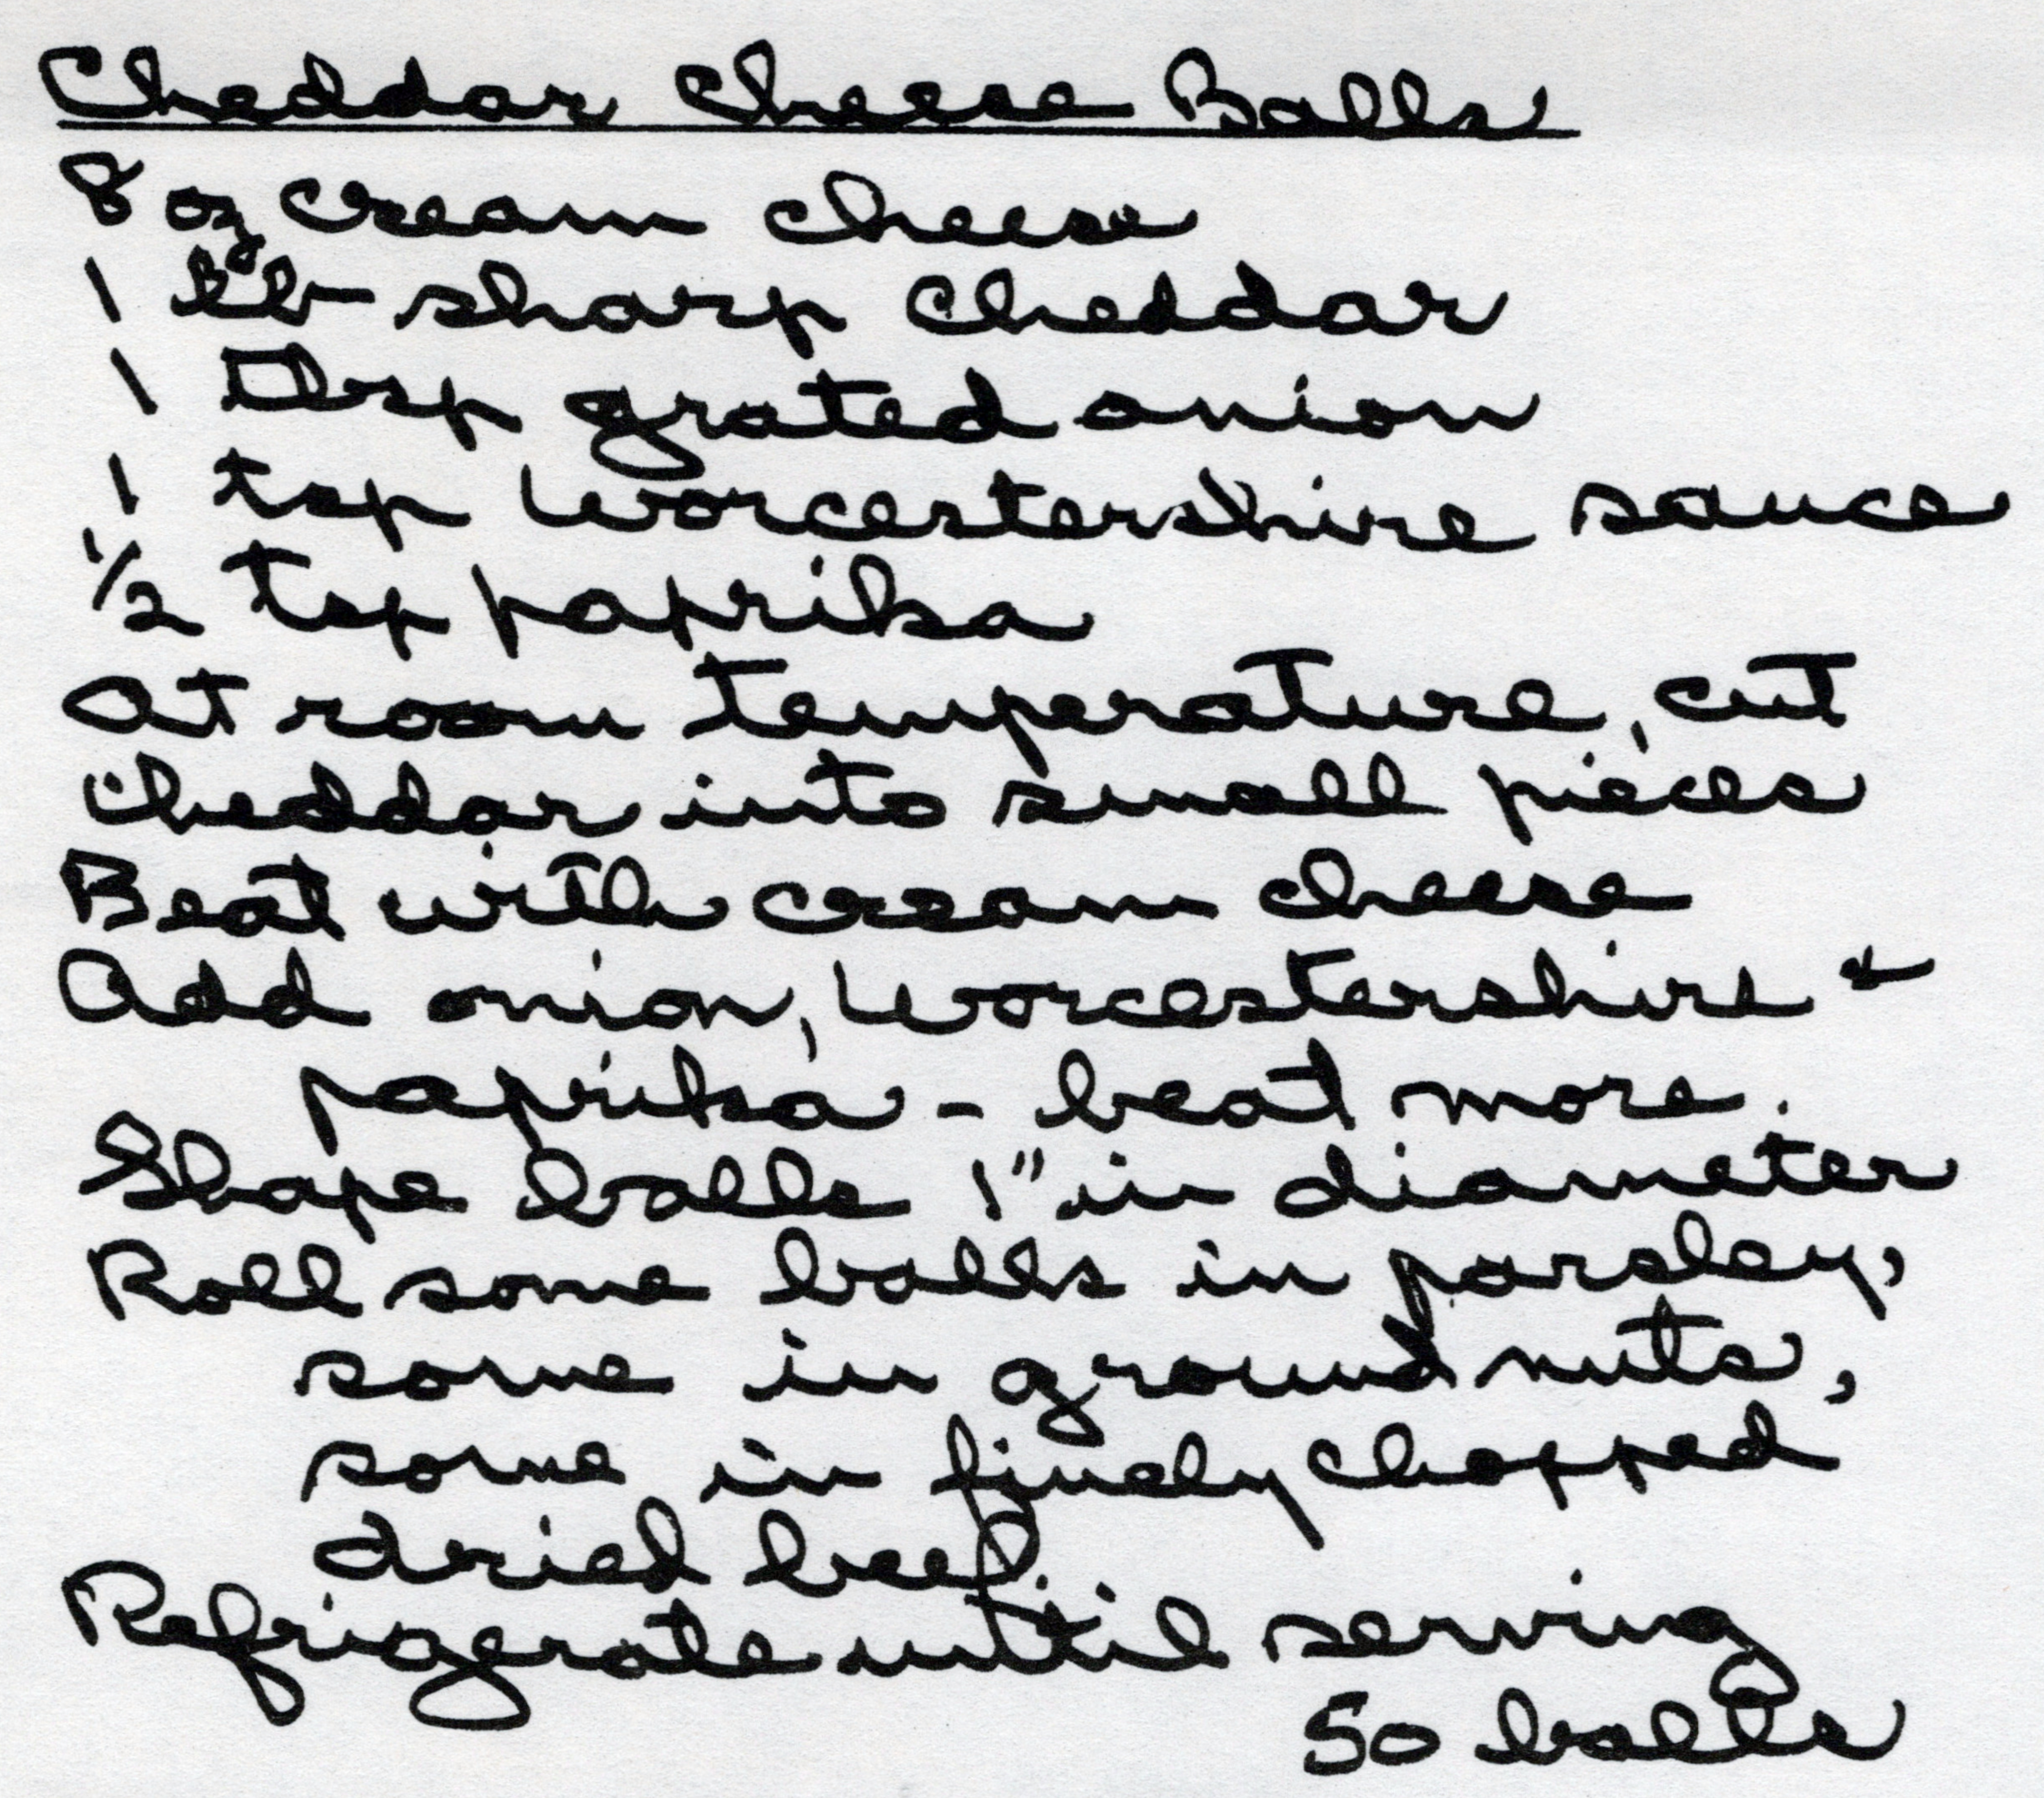 Cheddar Cheese Balls
8 oz cream cheese
1 lb sharp cheddar
1 Tbsp grated onion
1 tsp Worcestershire sauce
1/2 tsp paprika
At room temperature, cut
cheddar into small pieces
Beat with cream cheese
Add onion, Worcestershire &
paprika - beat more.
Shape balls 1" in diameter
Roll some balls in parsley,
some in ground nuts,
some in finely chopped
dried beef.
Refrigerate until serving
50 balls